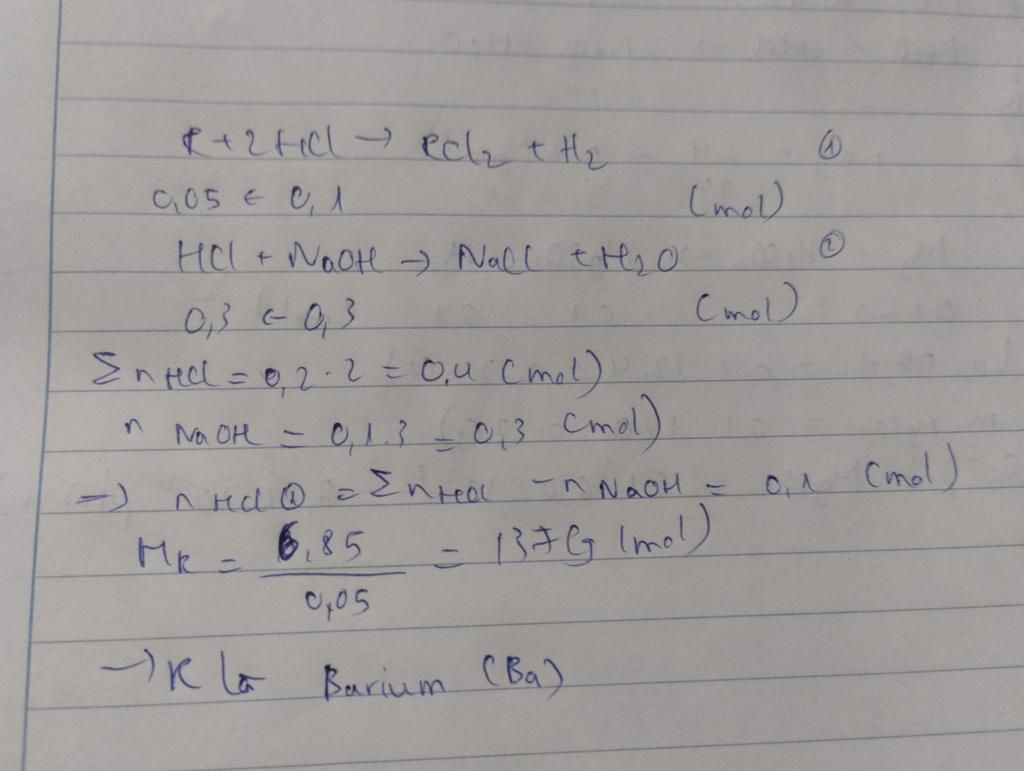 R + 2HCl → RCl2 + H2 ①
0,05 ← 0,1 (mol)
HCl + NaOH → NaCl + H2O ②
0,3 ← 0,3 (mol)
Σ nHCl = 0,2 . 2 = 0,4 (mol)
n NaOH = 0,1.3 = 0,3 (mol)
→ n HCl ① = Σ nHCl - n NaOH = 0,1 (mol)
MR = 6,85 / 0,05 = 137 (g/mol)
→ R là Barium (Ba)